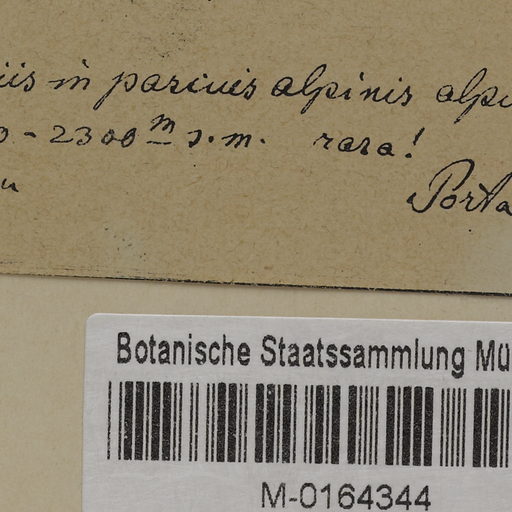 iis in parcuis alpinis alpi
0 - 2300 m s. m. rara!
u
Porta
Botanische Staatssammlung Mü
M-0164344